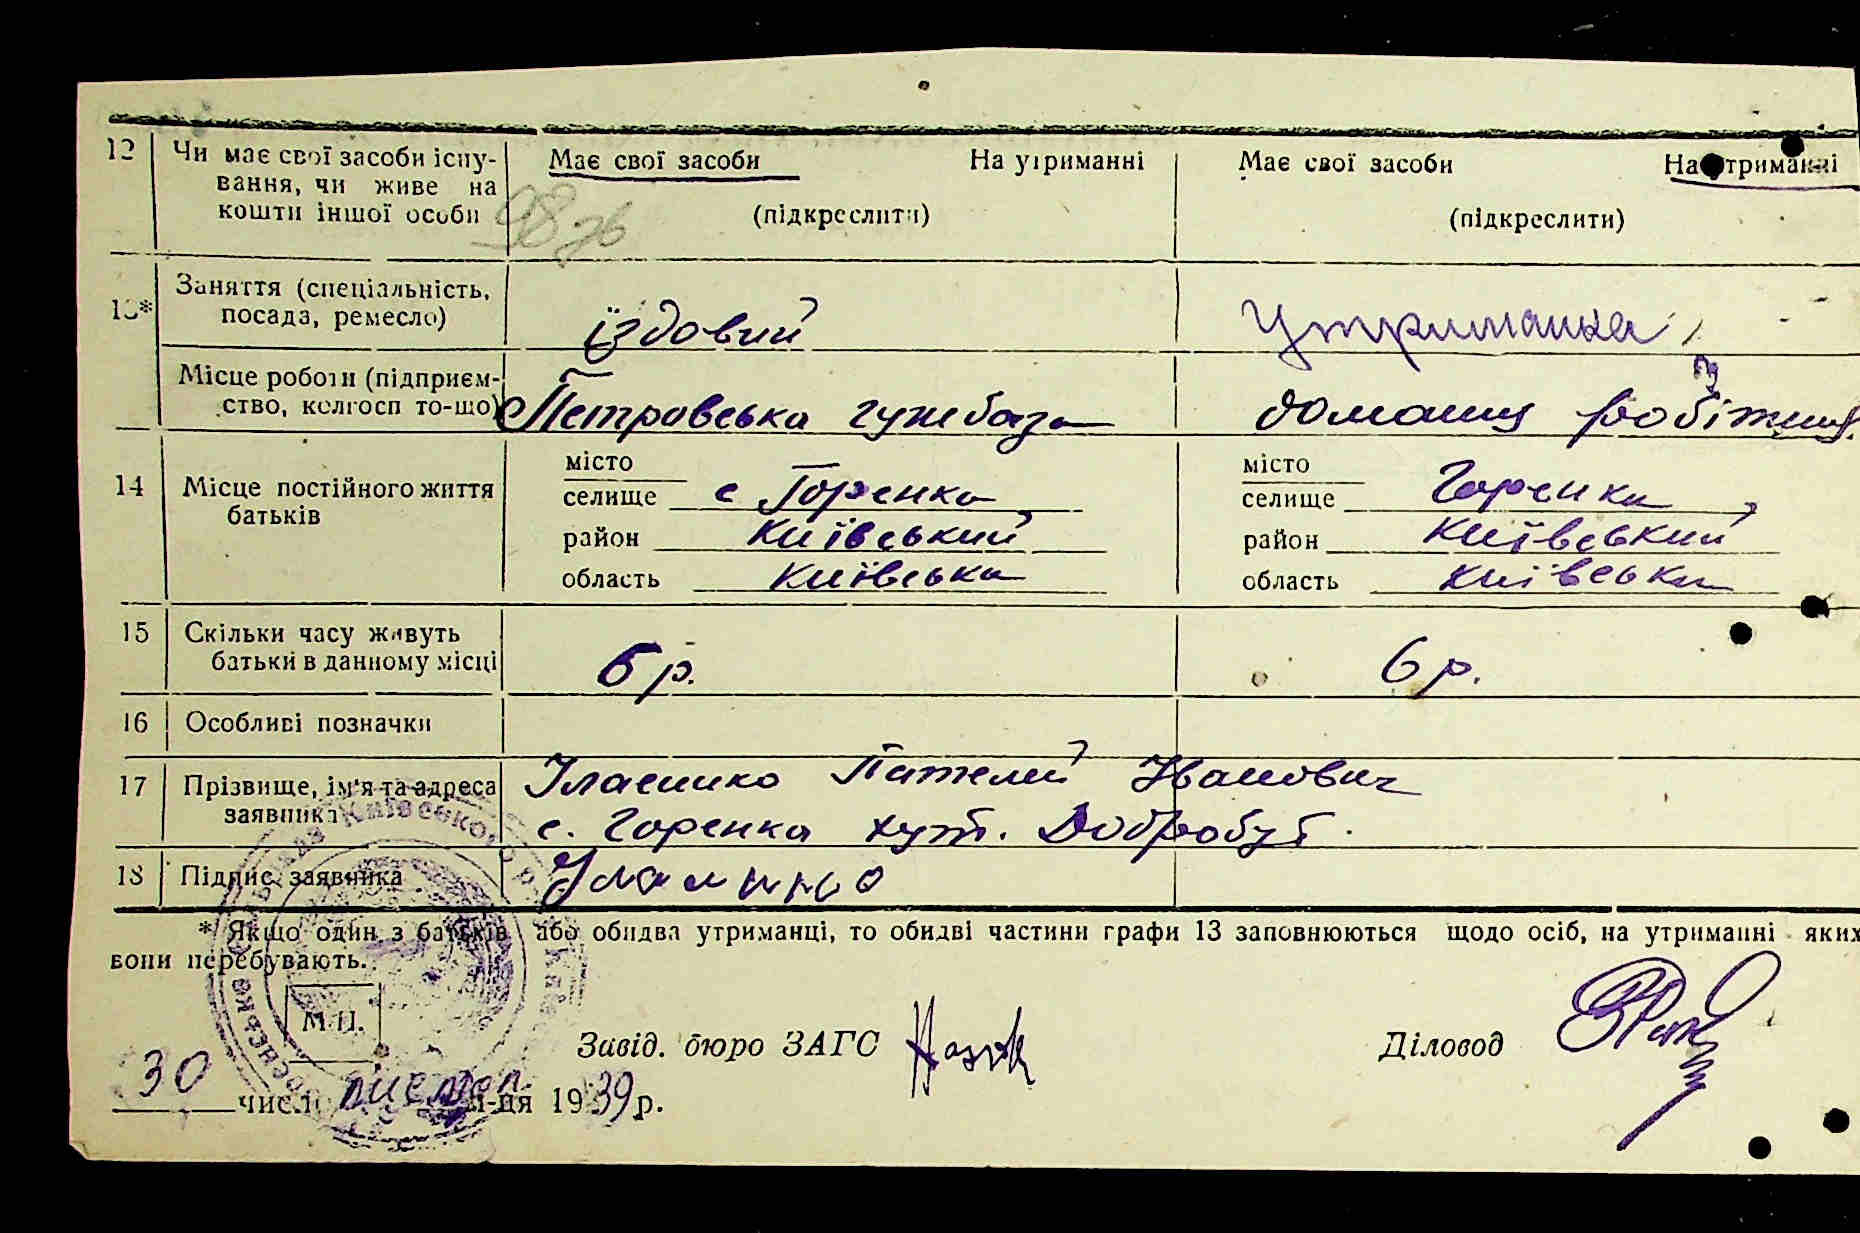 12 Чи має свої засоби існування, чи живе на кошти іншої особи
Має свої засоби На утриманні
(підкреслити)
Має свої засоби На утриманні
(підкреслити)
98 зв
13* Заняття (спеціальність, посада, ремесло)
їздовий
Утриманка
Місце роботи (підприємство, колгосп то-що)
Петровська гужбаза
домашн робітниц.
14 Місце постійного життя батьків
місто
селище с Горенка
район Київський
область Київська
місто
селище Горенка
район Київський
область Київська
15 Скільки часу живуть батьки в данному місці
6 р.
6 р.
16 Особливі позначки
17 Прізвище, ім'я та адреса заявника
Іванович
с. Горенка хут. Добробут.
18 Підпис заявника
* Якщо один з батьків або обидва утриманці, то обидві частини графи 13 заповнюються щодо осіб, на утриманні яких
вони перебувають.
М.П.
Завід. бюро ЗАГС
Діловод
30 числ м-ця 1939 р.